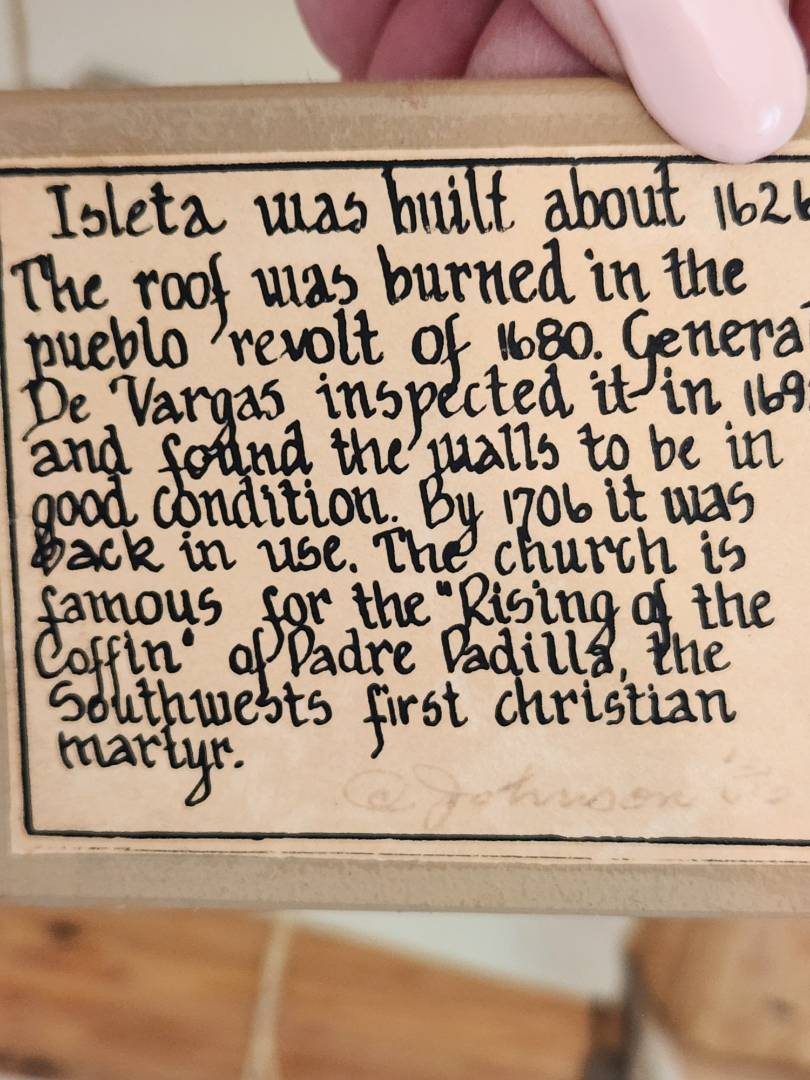 Isleta was built about 1626
The roof was burned in the
pueblo revolt of 1680. Genera
De Vargas inspected it in 169
and found the walls to be in
good condition. By 1706 it was
back in use. The church is
famous for the "Rising of the
Coffin" of Padre Padilla, the
Southwests first christian
martyr.
Johnson